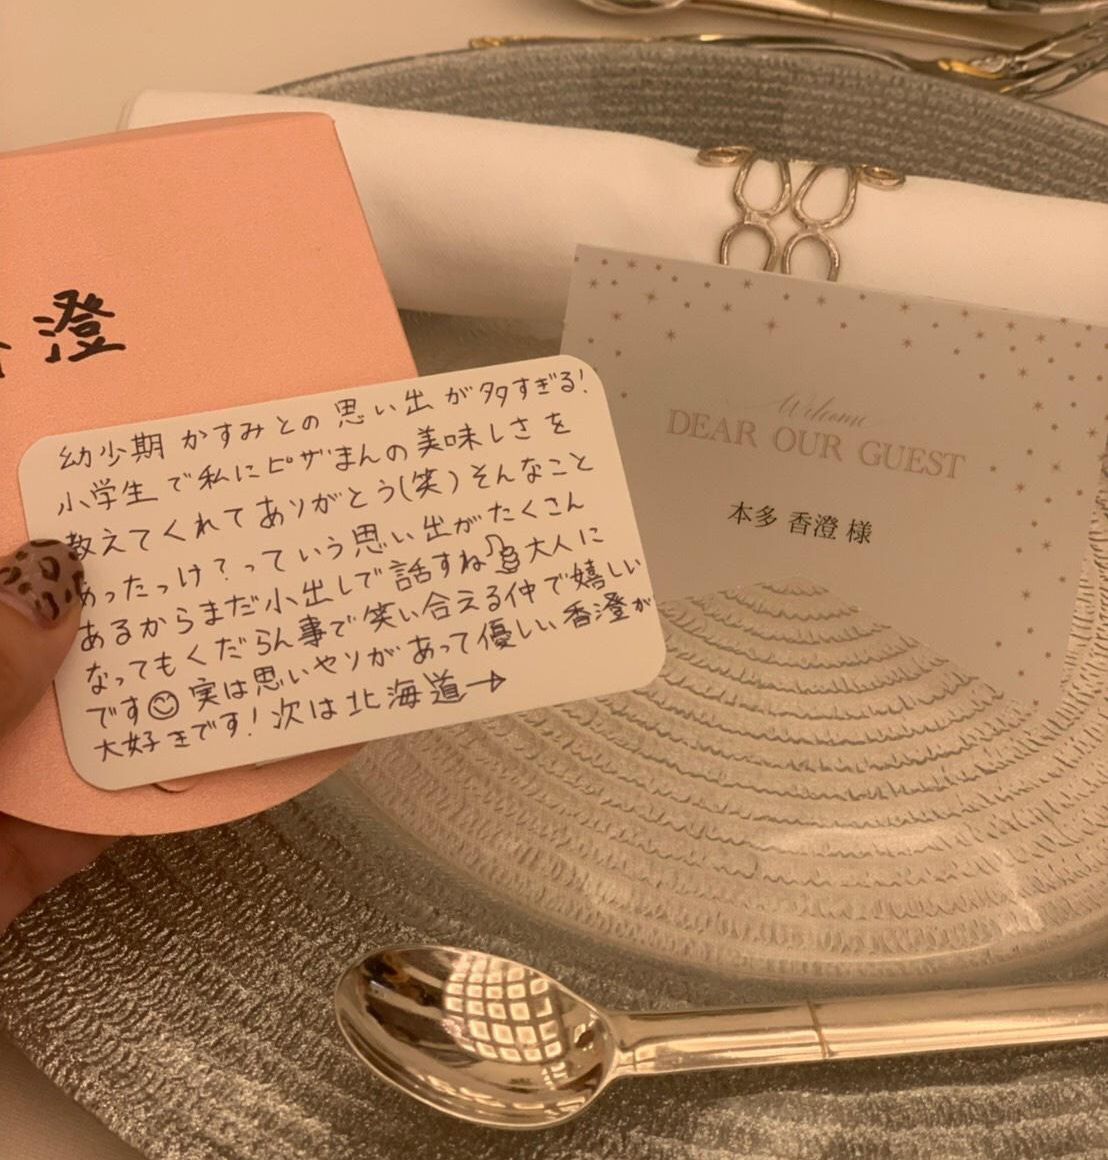 澄
幼少期 かすみとの 思い出 が多すぎる!
小学生 で私にピザまんの美味しさを
教えてくれてありがとう(笑)そんなこと
あったっけ?っていう思い出がたくさん
あるからまだ小出しで話すね 大人に
なってもくだらん事で笑い合える仲で嬉しい
です 実は思いやりがあって優しい香澄が
大好きです!次は北海道→
Welcome
DEAR OUR GUEST
本多 香澄 様